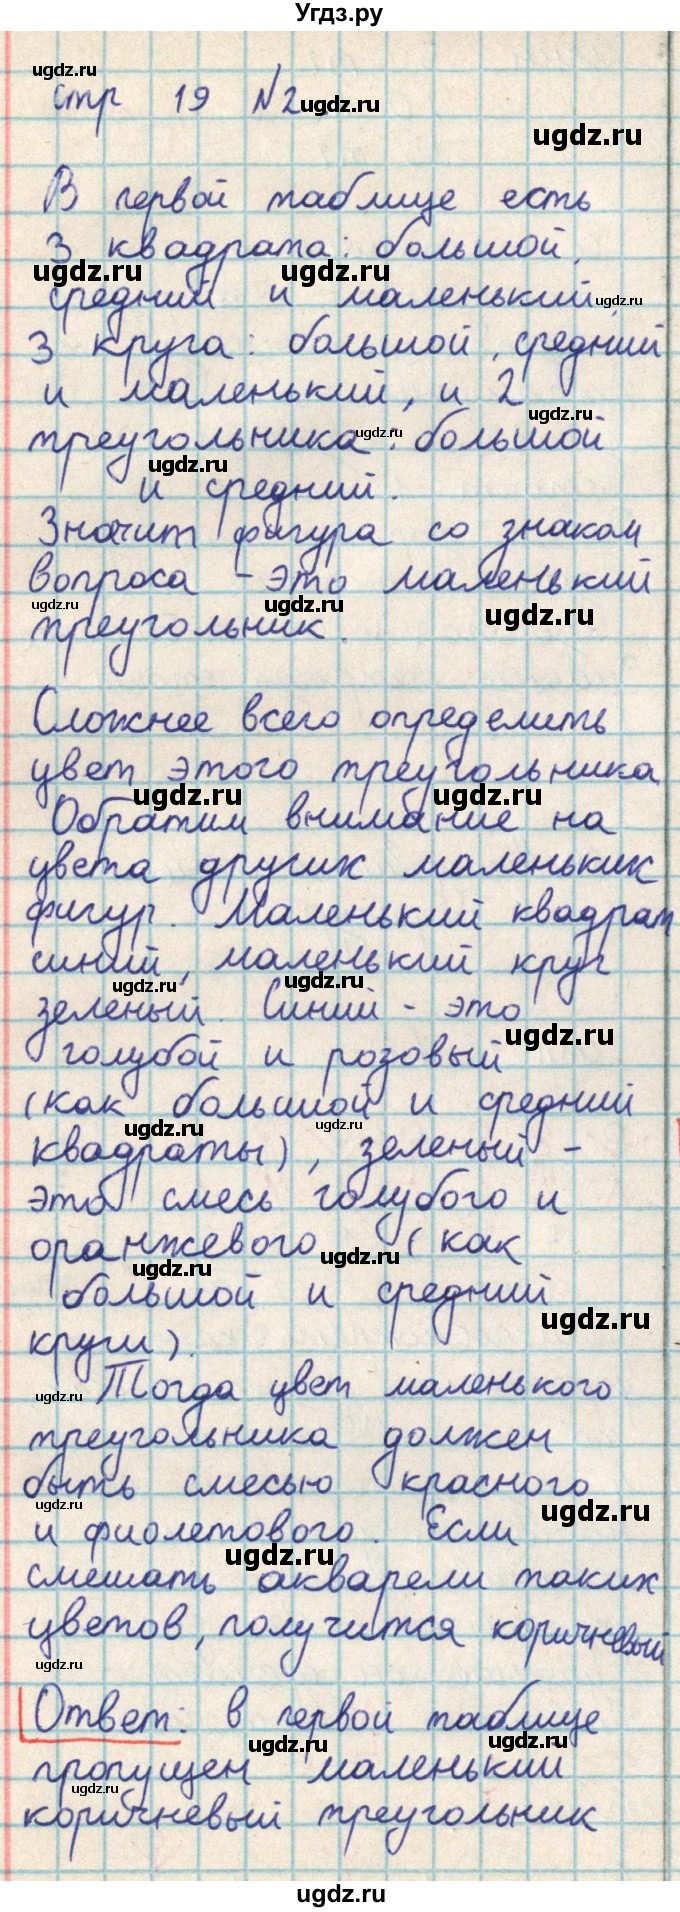 Угдз.ру
стр 19 №2.
В первой таблице есть
3 квадрата: большой,
средний и маленький,
3 круга: большой, средний
и маленький, и 2
треугольника: большой
и средний.
Значит фигура со знаком
вопроса - это маленький
треугольник.
Сложнее всего определить
цвет этого треугольника
Обратим внимание на
цвета других маленьких
фигур. Маленький квадрат
синий, маленький круг
зеленый. Синий - это
голубой и розовый
(как большой и средний
квадраты), зеленый -
это смесь голубого и
оранжевого (как
большой и средний
круги).
Тогда цвет маленького
треугольника должен
быть смесью красного
и фиолетового. Если
смешать акварели таких
цветов, получится коричневый
Ответ: в первой таблице
пропущен маленький
коричневый треугольник
ugdz.ru